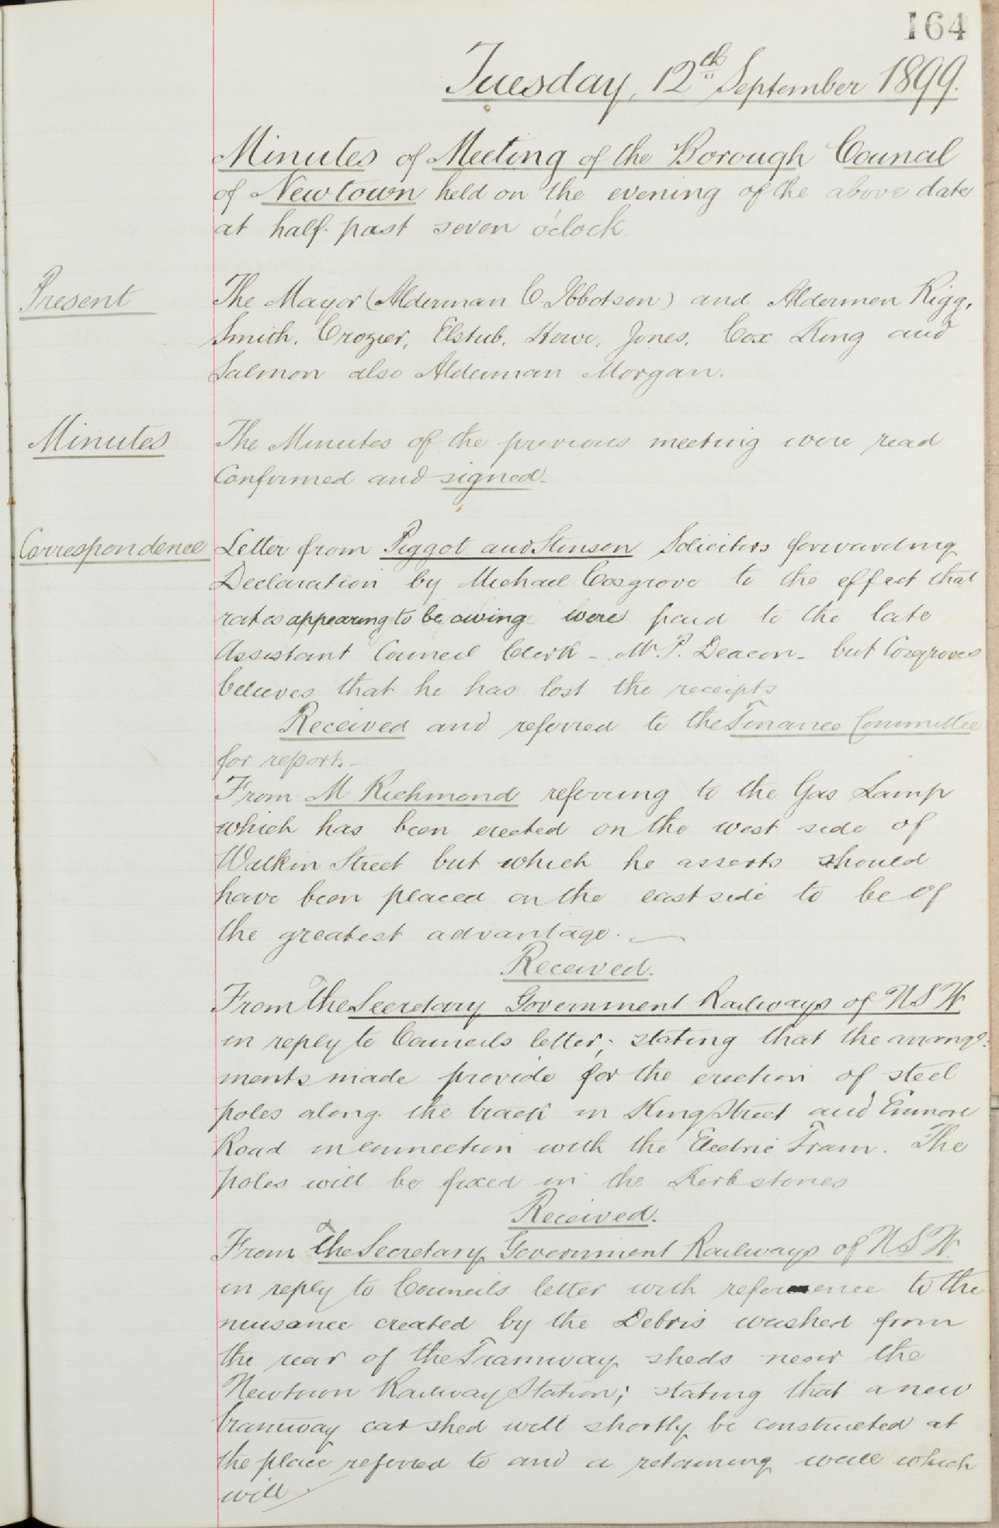 164
Tuesday, 12th September 1899.
Minutes of Meeting of the Borough Council
of Newtown held on the evening of the above date
at half past seven o'clock.
Present
The Mayor (Alderman C Ibbotson) and Aldermen Rigg,
Smith, Crozier, Elstub, Howe, Jones, Cox King and
Salmon also Alderman Morgan.
Minutes
The Minutes of the previous meeting were read
Confirmed and signed.
Correspondence
Letter from Piggot and Stinson Solicitors forwarding
Declaration by Michael Cosgrove to the effect that
rates appearing to be owing were paid to the late
Assistant Council Clerk - Mr. P. Deacon - but Cosgroves
believes that he has lost the receipts
Received and referred to the Finance Committee
for report. -
From M Richmond referring to the Gas Lamp
which has been erected on the west side of
Watkin Street but which he asserts should
have been placed on the east side to be of
the greatest advantage. -
Received.
From The Secretary Government Railways of N S W
in reply to Councils letter; stating that the arrange-
ments made provide for the erection of steel
poles along the track in King Street and Enmore
Road in connection with the Electric Tram. The
poles will be fixed in the Kerbstones
Received.
From The Secretary Government Railways of N.S.W.
in reply to Councils letter with reference to the
nuisance created by the Debris washed from
the rear of the Tramway sheds near the
Newtown Railway Station; stating that a new
tramway car shed will shortly be constructed at
the place referred to and a retaining wall which
will